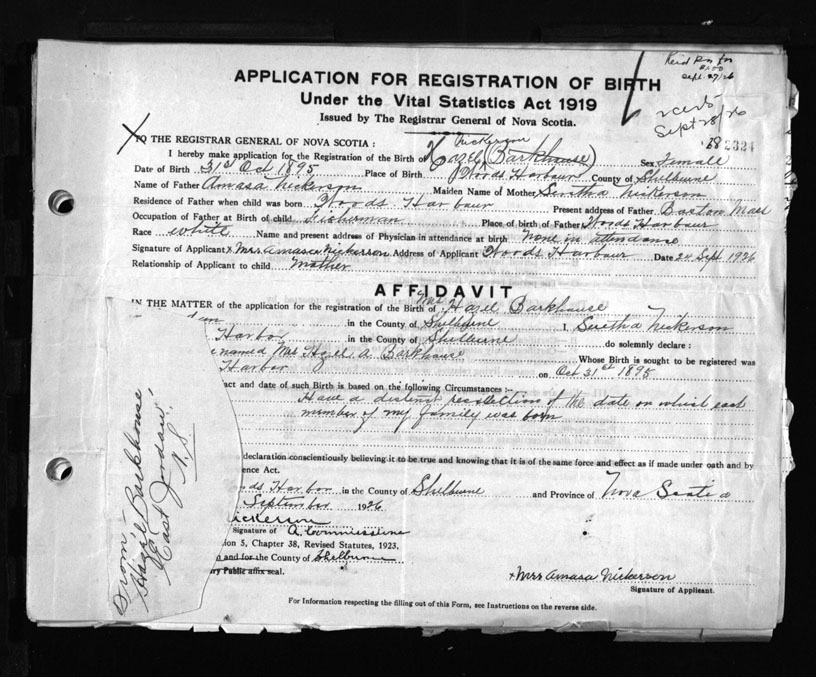 Recd
Sept. 27/26
Sept 28/26
APPLICATION FOR REGISTRATION OF BIRTH
Under the Vital Statistics Act 1919
Issued by The Registrar General of Nova Scotia.
2324
TO THE REGISTRAR GENERAL OF NOVA SCOTIA :
Nickerson
I hereby make application for the Registration of the Birth of Hazel (Barkhouse) Sex Female
Date of Birth 31st Oct 1895 Place of Birth Woods Harbour County of Shelburne
Name of Father Amasa Nickerson Maiden Name of Mother Seretha Nickerson
Residence of Father when child was born Woods Harbour Present address of Father Boston Mass
Occupation of Father at Birth of child Fisherman Place of birth of Father Woods Harbour
Race white Name and present address of Physician in attendance at birth None in attendance
Signature of Applicant x Mrs Amasa Nickerson Address of Applicant Woods Harbour Date 24 Sept 1926
Relationship of Applicant to child mother
AFFIDAVIT
IN THE MATTER of the application for the registration of the Birth of Mrs Hazel Barkhouse
in the County of Shelburne I, Seretha Nickerson
Harbor in the County of Shelburne do solemnly declare :
named Mrs Hazel A. Barkhouse Whose Birth is sought to be registered was
Harbor on Oct 31st 1895
act and date of such Birth is based on the following Circumstances :-
Have a distinct recollection of the date on which each
member of my family was born
declaration conscientiously believing it to be true and knowing that it is of the same force and effect as if made under oath and by
ence Act.
ods Harbor in the County of Shelburne and Province of Nova Scotia
September 1926
ickerson
Signature of A Commissione
ion 5, Chapter 38, Revised Statutes, 1923,
and for the County of Shelburne
ry Public affix seal.
x Mrs Amasa Nickerson
Signature of Applicant.
For Information respecting the filling out of this Form, see Instructions on the reverse side.
From-
Hazel Barkhouse
East Jordan,
N.S.